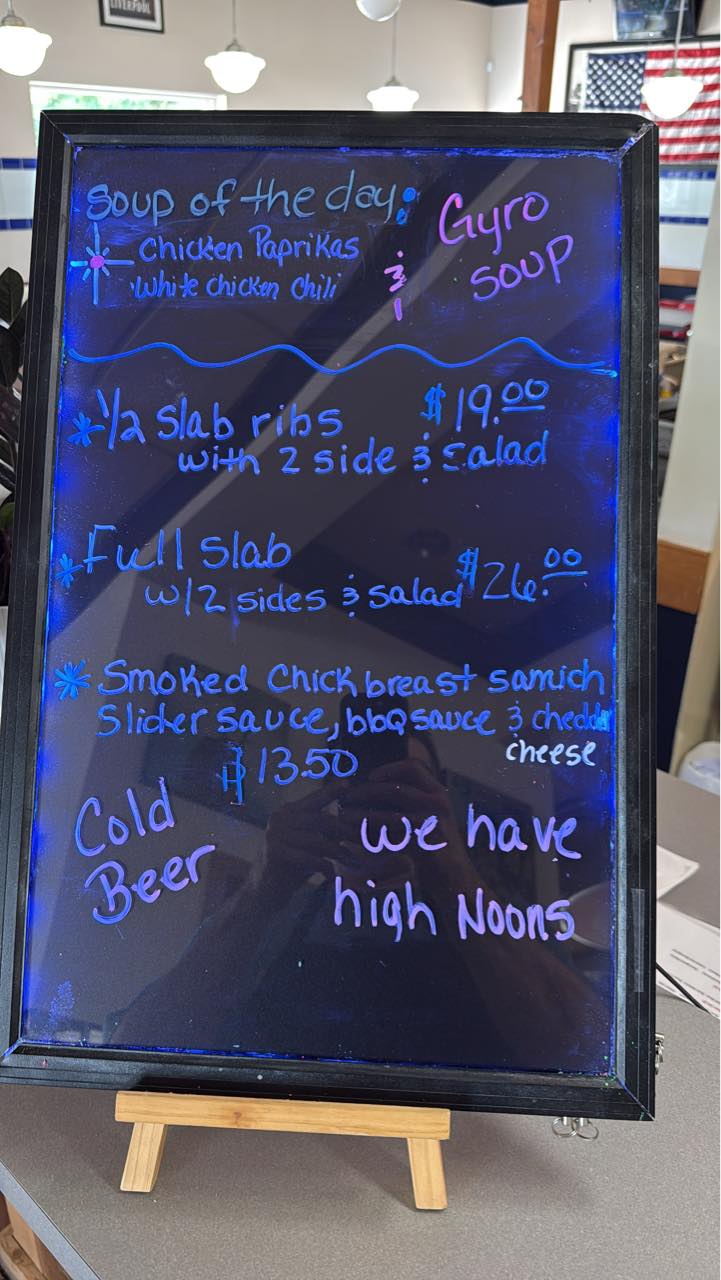 LIVERPOOL
Soup of the day:
Chicken Paprikas
White chicken Chili
&
Gyro
soup
*1/2 Slab ribs $19.00
with 2 side & Salad
*Full Slab
w/2 sides & salad $26.00
* Smoked Chick breast samich
Slider sauce, bbq sauce & chedder
cheese
$13.50
Cold
Beer
we have
high Noons